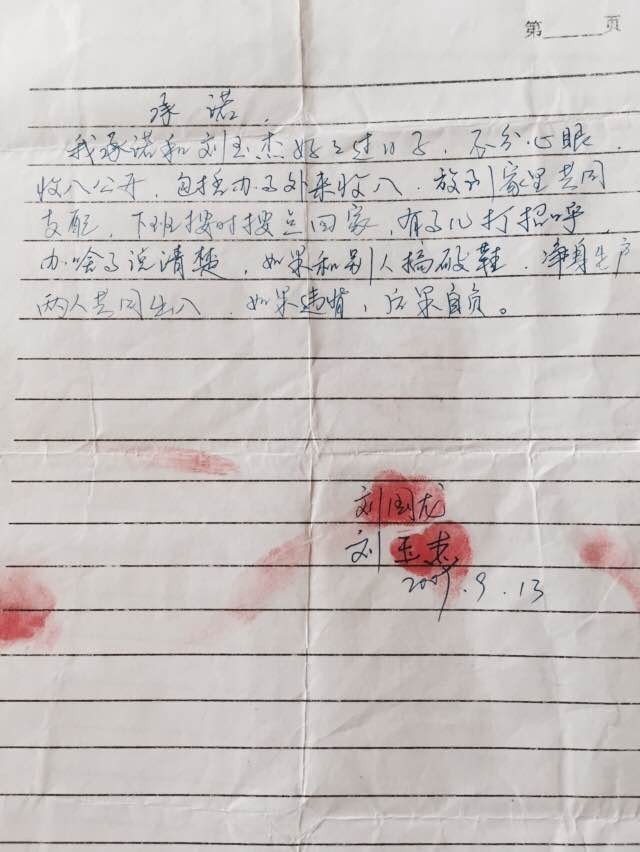 第 页
承诺.
我承诺和刘玉杰好好过日子，不分心眼，
收入公开，包括办事外来收入，放到家里共同
支配，下班按时按点回家，有事儿打招呼，
办啥事说清楚，如果和别人搞破鞋，净身出户
两人共同出入，如果违背，后果自负。
刘国龙
刘玉杰
9.13